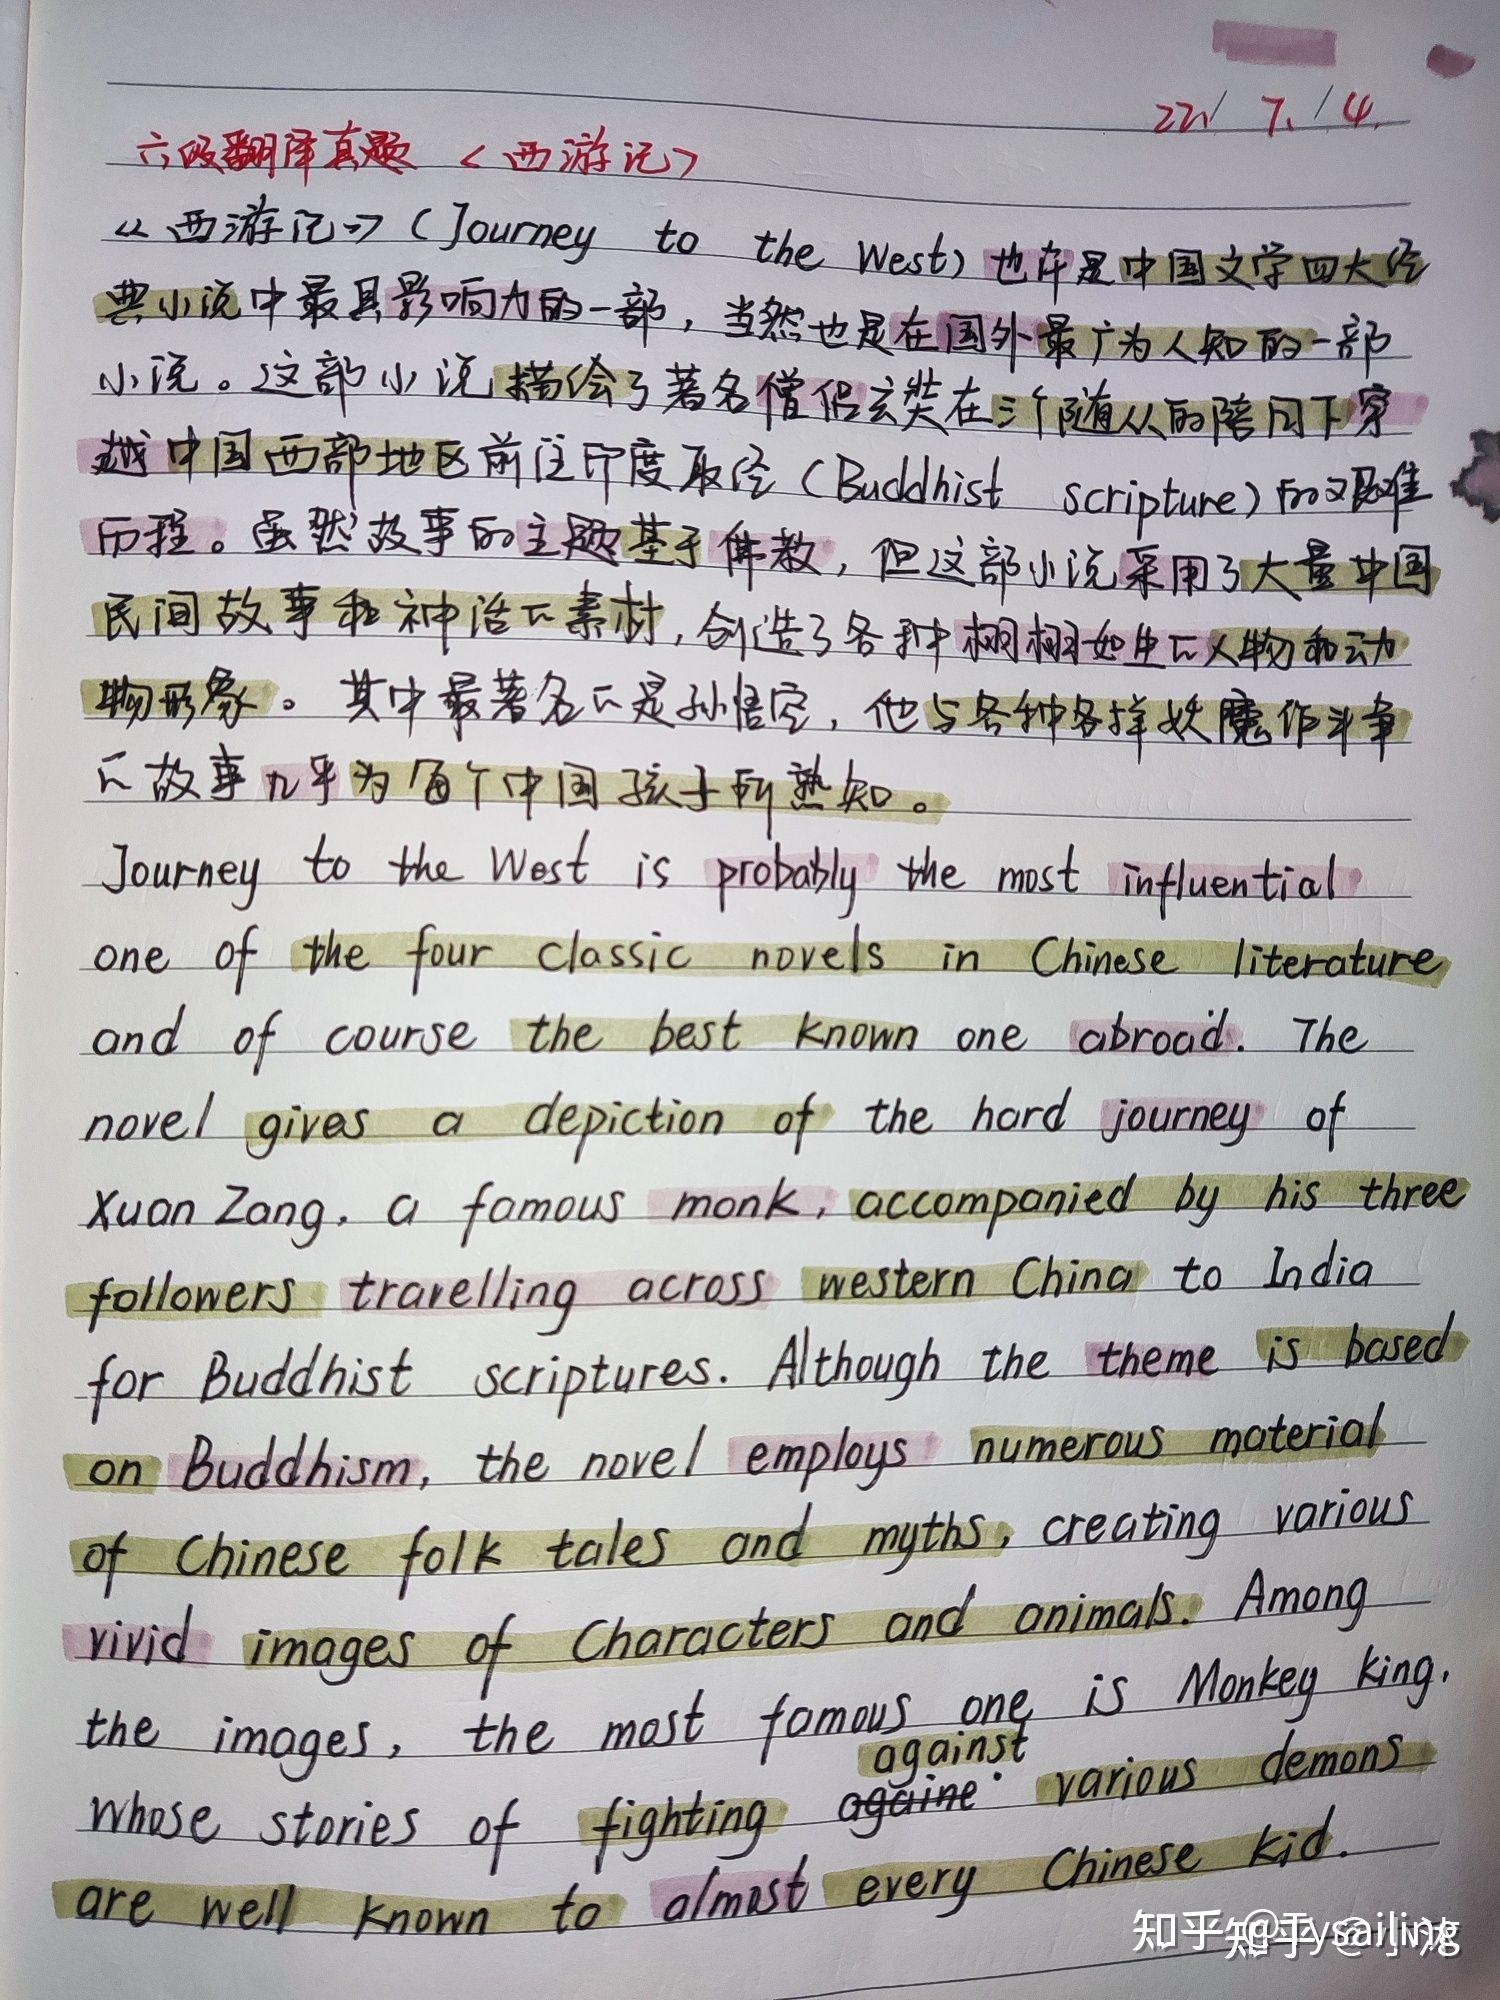 22/7/4.
六级翻译真题 <西游记>
《西游记》(Journey to the West)也许是中国文学四大经
典小说中最具影响力的一部，当然也是在国外最广为人知的一部
小说。这部小说描绘了著名僧侣玄奘在三个随从的陪同下穿
越中国西部地区前往印度取经(Buddhist scripture)的艰难
历程。虽然故事的主题基于佛教，但这部小说采用了大量中国
民间故事和神话的素材，创造了各种栩栩如生的人物和动
物形象。其中最著名的是孙悟空，他与各种各样妖魔作斗争
的故事几乎为每个中国孩子所熟知。
Journey to the West is probably the most influential
one of the four classic novels in Chinese literature
and of course the best known one abroad. The
novel gives a depiction of the hard journey of
Xuan Zang, a famous monk, accompanied by his three
followers travelling across western China to India
for Buddhist scriptures. Although the theme is based
on Buddhism, the novel employs numerous material
of Chinese folk tales and myths, creating various
vivid images of Characters and animals. Among
the images, the most famous one is Monkey King,
against
whose stories of fighting againe various demons
are well known to almost every Chinese kid.
知乎 @Zysailing